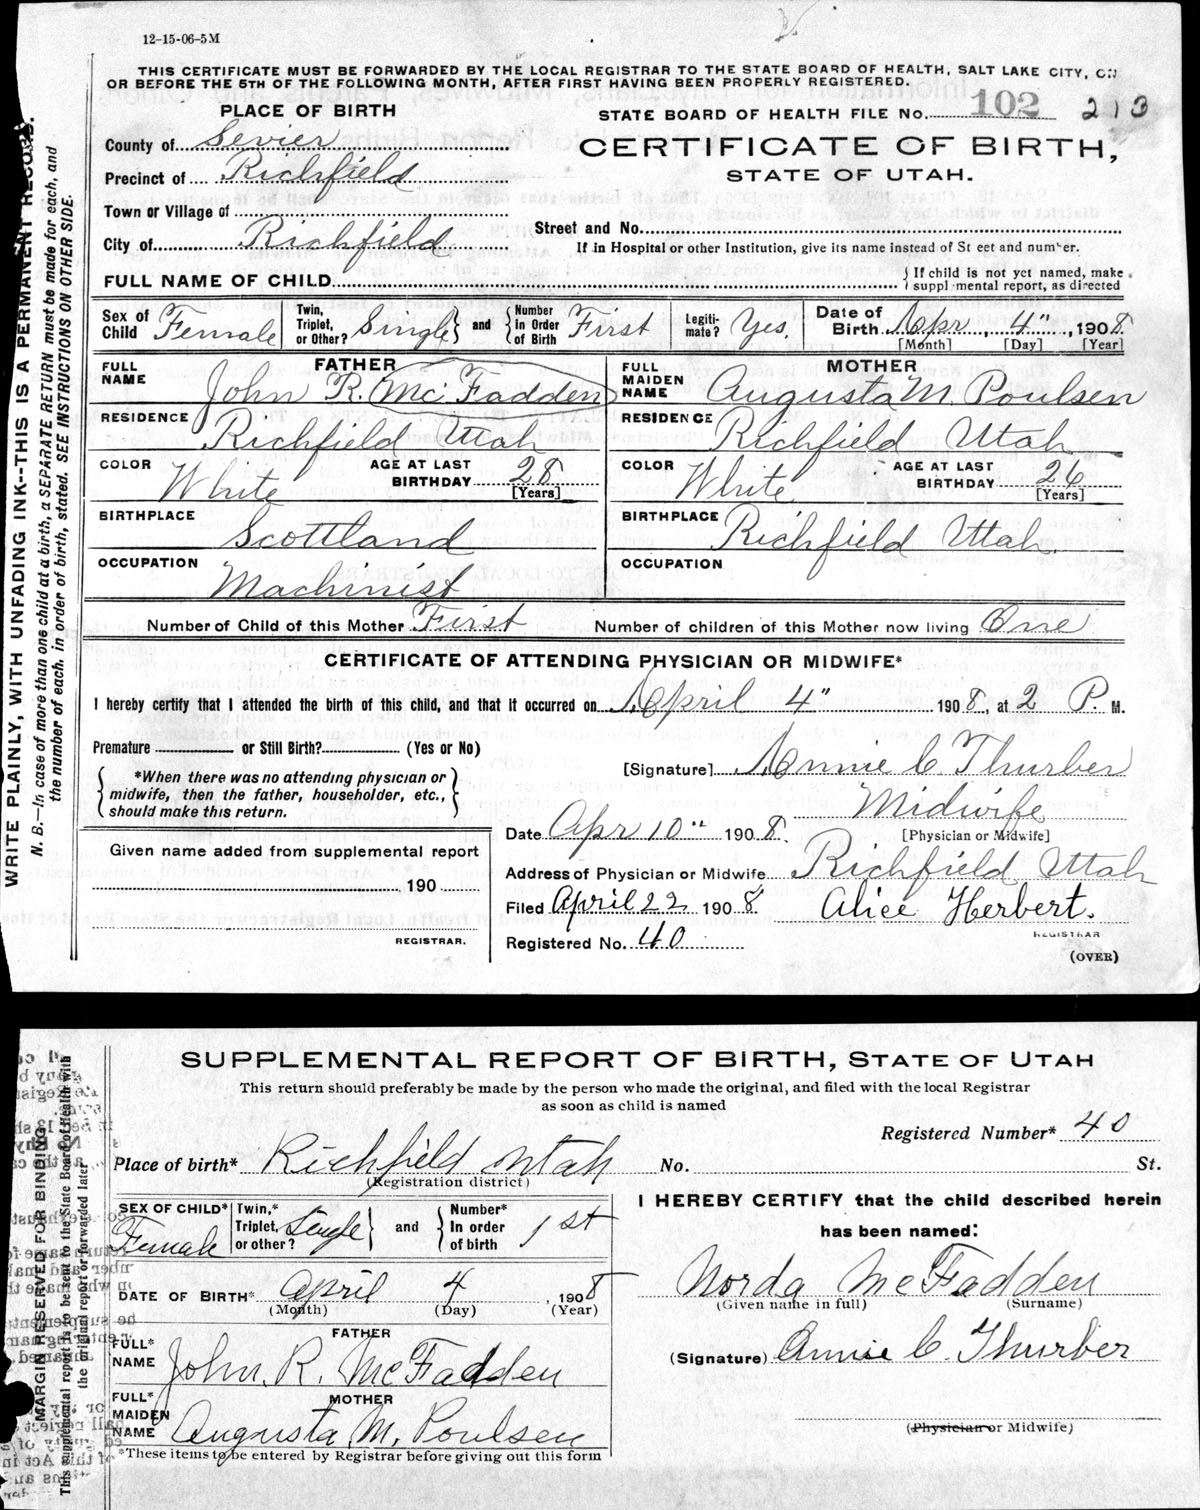 12-15-06-5M
THIS CERTIFICATE MUST BE FORWARDED BY THE LOCAL REGISTRAR TO THE STATE BOARD OF HEALTH, SALT LAKE CITY, ON
OR BEFORE THE 5TH OF THE FOLLOWING MONTH, AFTER FIRST HAVING BEEN PROPERLY REGISTERED.
PLACE OF BIRTH
STATE BOARD OF HEALTH FILE No. 102 213
County of Sevier
CERTIFICATE OF BIRTH,
Precinct of Richfield
STATE OF UTAH.
Town or Village of
Street and No.
City of Richfield
If in Hospital or other Institution, give its name instead of St eet and number.
FULL NAME OF CHILD
If child is not yet named, make
suppl mental report, as directed
Sex of Child Female
Twin, Triplet, or Other? Single and Number in Order of Birth First
Legiti-mate? Yes.
Date of Birth Apr 4" 1908
[Month] [Day] [Year]
FATHER
FULL NAME John R. McFadden
RESIDENCE Richfield Utah
COLOR White AGE AT LAST BIRTHDAY 28 [Years]
BIRTHPLACE Scottland
OCCUPATION Machinist
MOTHER
FULL MAIDEN NAME Augusta M. Poulsen
RESIDENCE Richfield Utah
COLOR White AGE AT LAST BIRTHDAY 26 [Years]
BIRTHPLACE Richfield Utah.
OCCUPATION
Number of Child of this Mother First Number of children of this Mother now living One
CERTIFICATE OF ATTENDING PHYSICIAN OR MIDWIFE*
I hereby certify that I attended the birth of this child, and that it occurred on April 4" 1908, at 2 P. M.
Premature or Still Birth? (Yes or No)
*When there was no attending physician or
midwife, then the father, householder, etc.,
should make this return.
[Signature] Annie C Thurber
Midwife
[Physician or Midwife]
Date Apr 10" 1908.
Address of Physician or Midwife Richfield Utah
Filed April 22 1908 Alice Herbert.
REGISTRAR
Registered No. 40
(OVER)
Given name added from supplemental report
190
REGISTRAR.
WRITE PLAINLY, WITH UNFADING INK--THIS IS A PERMANENT RECORD.
N. B.—In case of more than one child at a birth, a SEPARATE RETURN must be made for each, and
the number of each, in order of birth, stated. SEE INSTRUCTIONS ON OTHER SIDE.
SUPPLEMENTAL REPORT OF BIRTH, STATE OF UTAH
This return should preferably be made by the person who made the original, and filed with the local Registrar
as soon as child is named
Registered Number* 40
Place of birth* Richfield Utah No. St.
(Registration district)
SEX OF CHILD* Female
Twin,* Triplet, or other? Single and Number* In order of birth 1st
DATE OF BIRTH* April 4, 1908
(Month) (Day) (Year)
FATHER
FULL* NAME John. R. McFadden
MOTHER
FULL* MAIDEN NAME Augusta M. Poulsen
*These items to be entered by Registrar before giving out this form
I HEREBY CERTIFY that the child described herein
has been named:
Norda McFadden
(Given name in full) (Surname)
(Signature) Annie C. Thurber
(Physician or Midwife)
MARGIN RESERVED FOR BINDING
This supplemental report is to be sent to the State Board of Health with
the original report or forwarded later